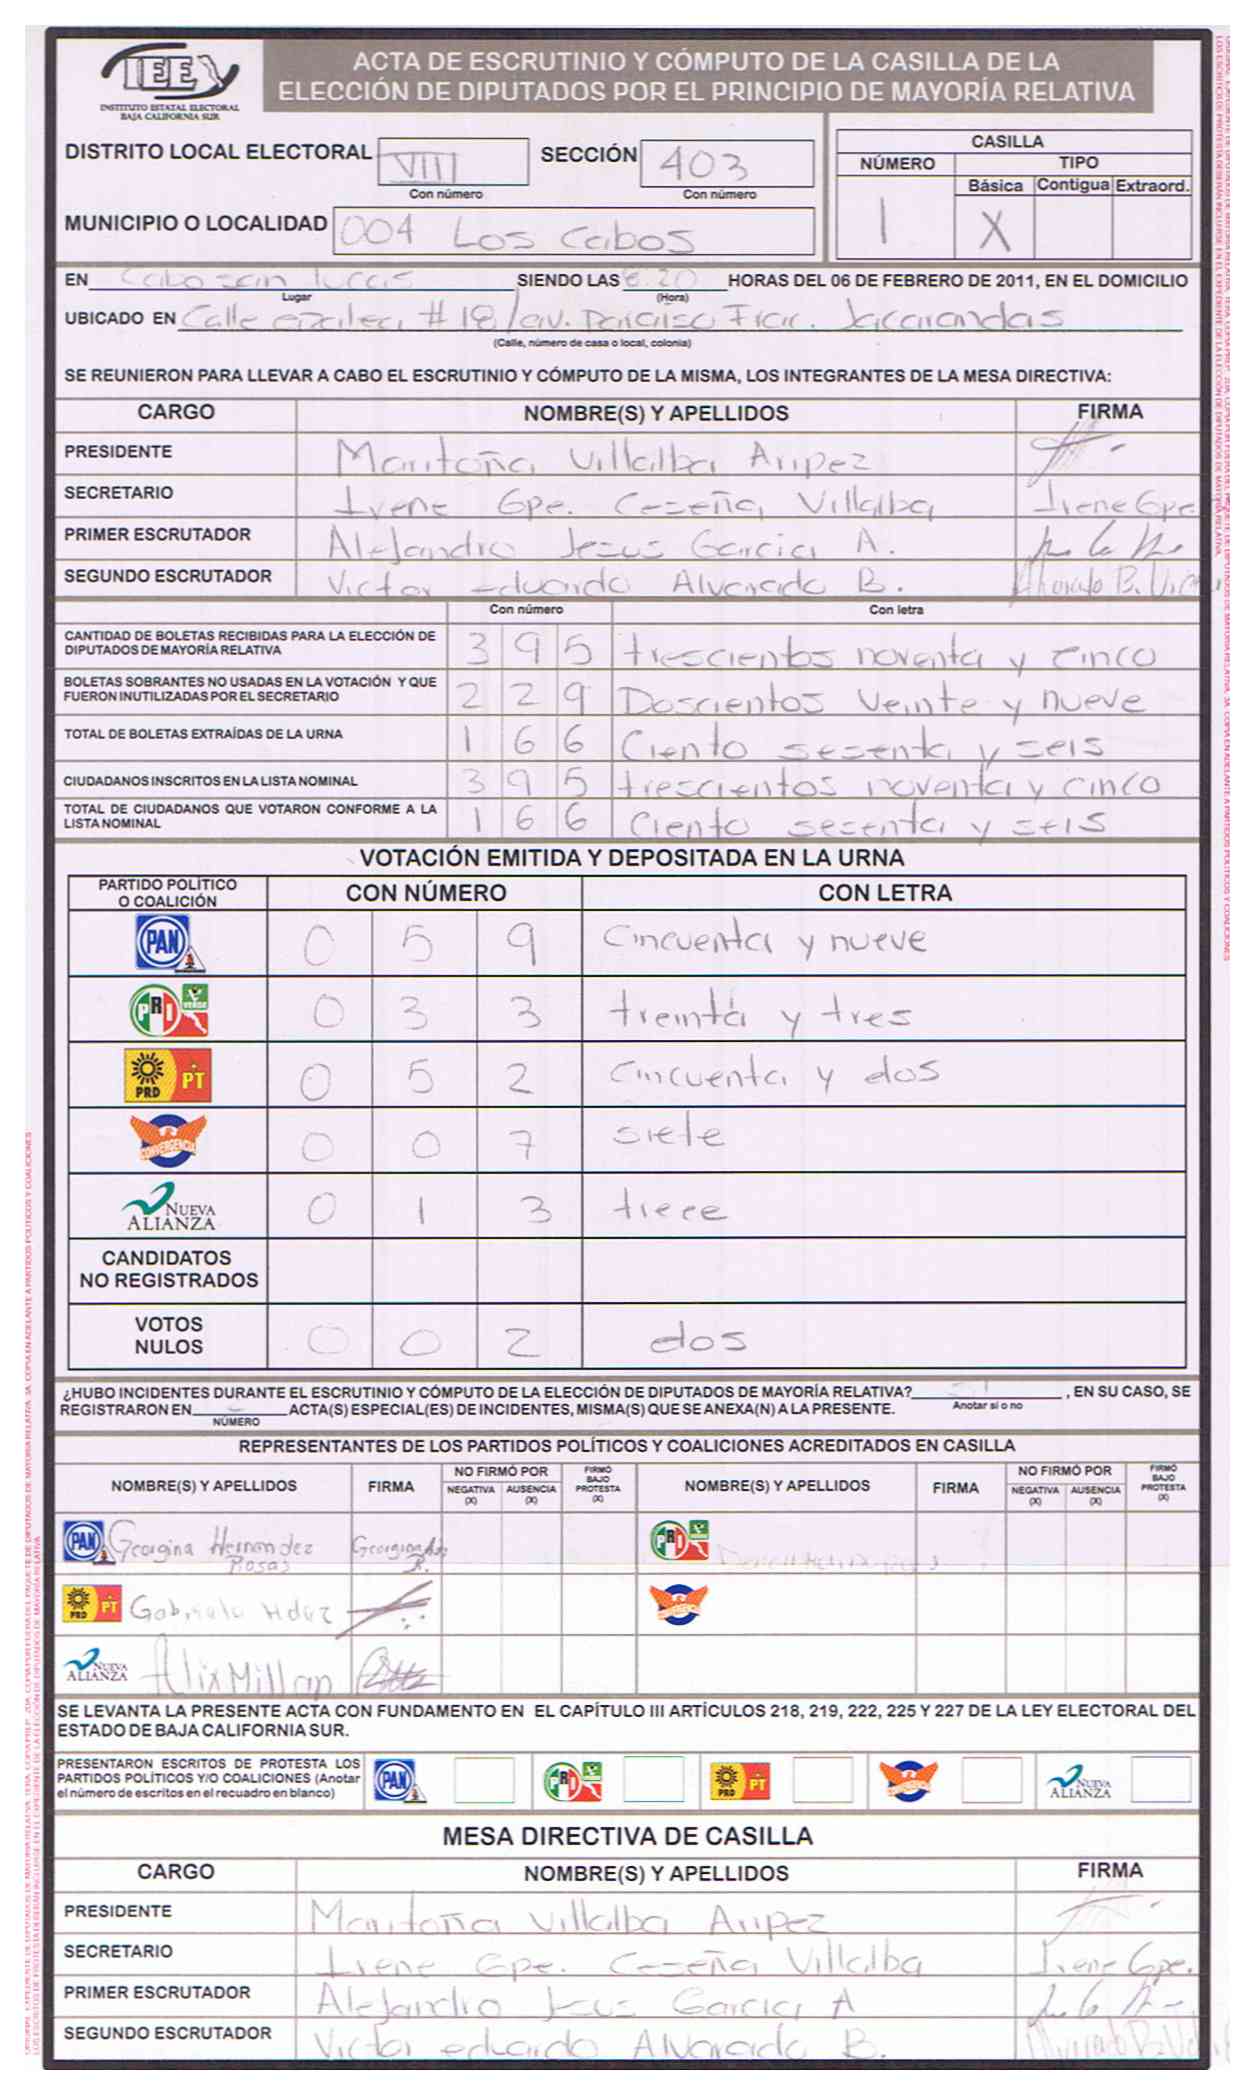 IEE
INSTITUTO ESTATAL ELECTORAL
BAJA CALIFORNIA SUR
ACTA DE ESCRUTINIO Y CÓMPUTO DE LA CASILLA DE LA
ELECCIÓN DE DIPUTADOS POR EL PRINCIPIO DE MAYORÍA RELATIVA
DISTRITO LOCAL ELECTORAL VIII SECCIÓN 403
Con número Con número
MUNICIPIO O LOCALIDAD 004 Los Cabos
CASILLA
NÚMERO TIPO
Básica Contigua Extraord.
1 X
EN Cabo san lucas SIENDO LAS 8:20 HORAS DEL 06 DE FEBRERO DE 2011, EN EL DOMICILIO
Lugar (Hora)
UBICADO EN Calle #18/av. Paraiso Frac. Jacarandas
(Calle, número de casa o local, colonia)
SE REUNIERON PARA LLEVAR A CABO EL ESCRUTINIO Y CÓMPUTO DE LA MISMA, LOS INTEGRANTES DE LA MESA DIRECTIVA:
CARGO NOMBRE(S) Y APELLIDOS FIRMA
PRESIDENTE Maritoña Villalba Aripez
SECRETARIO Irene Gpe. Ceseña Villalba Irene Gpe
PRIMER ESCRUTADOR Alejandro Jesus Garcia A.
SEGUNDO ESCRUTADOR Victor eduardo Alvarado B. Alvarado B. Victor
Con número Con letra
CANTIDAD DE BOLETAS RECIBIDAS PARA LA ELECCIÓN DE
DIPUTADOS DE MAYORÍA RELATIVA 3 9 5 trescientos noventa y cinco
BOLETAS SOBRANTES NO USADAS EN LA VOTACIÓN Y QUE
FUERON INUTILIZADAS POR EL SECRETARIO 2 2 9 Doscientos veinte y nueve
TOTAL DE BOLETAS EXTRAÍDAS DE LA URNA 1 6 6 Ciento sesenta y seis
CIUDADANOS INSCRITOS EN LA LISTA NOMINAL 3 9 5 trescientos noventa y cinco
TOTAL DE CIUDADANOS QUE VOTARON CONFORME A LA
LISTA NOMINAL 1 6 6 Ciento sesenta y seis
VOTACIÓN EMITIDA Y DEPOSITADA EN LA URNA
PARTIDO POLÍTICO
O COALICIÓN CON NÚMERO CON LETRA
PAN 0 5 9 Cincuenta y nueve
PRI VERDE 0 3 3 treinta y tres
PRD PT 0 5 2 Cincuenta y dos
CONVERGENCIA 0 0 7 siete
NUEVA ALIANZA 0 1 3 trece
CANDIDATOS
NO REGISTRADOS
VOTOS
NULOS 0 0 2 dos
¿HUBO INCIDENTES DURANTE EL ESCRUTINIO Y CÓMPUTO DE LA ELECCIÓN DE DIPUTADOS DE MAYORÍA RELATIVA? , EN SU CASO, SE
Anotar sí o no
REGISTRARON EN ACTA(S) ESPECIAL(ES) DE INCIDENTES, MISMA(S) QUE SE ANEXA(N) A LA PRESENTE.
NÚMERO
REPRESENTANTES DE LOS PARTIDOS POLÍTICOS Y COALICIONES ACREDITADOS EN CASILLA
NOMBRE(S) Y APELLIDOS FIRMA NO FIRMÓ POR NEGATIVA (X) AUSENCIA (X) FIRMÓ BAJO PROTESTA (X) NOMBRE(S) Y APELLIDOS FIRMA NO FIRMÓ POR NEGATIVA (X) AUSENCIA (X) FIRMÓ BAJO PROTESTA (X)
PAN Georgina Hernandez Rosas Georgina R. PRI VERDE
PRD PT Gabriela Hdez CONVERGENCIA
NUEVA ALIANZA Alix Millan
SE LEVANTA LA PRESENTE ACTA CON FUNDAMENTO EN EL CAPÍTULO III ARTÍCULOS 218, 219, 222, 225 Y 227 DE LA LEY ELECTORAL DEL
ESTADO DE BAJA CALIFORNIA SUR.
PRESENTARON ESCRITOS DE PROTESTA LOS
PARTIDOS POLÍTICOS Y/O COALICIONES (Anotar
el número de escritos en el recuadro en blanco)
PAN PRI VERDE PRD PT CONVERGENCIA NUEVA ALIANZA
MESA DIRECTIVA DE CASILLA
CARGO NOMBRE(S) Y APELLIDOS FIRMA
PRESIDENTE Maritoña Villalba Aripez
SECRETARIO Irene Gpe. Ceseña Villalba Irene Gpe.
PRIMER ESCRUTADOR Alejandro Jesus Garcia A
SEGUNDO ESCRUTADOR Victor eduardo Alvarado B. Alvarado B. Victor